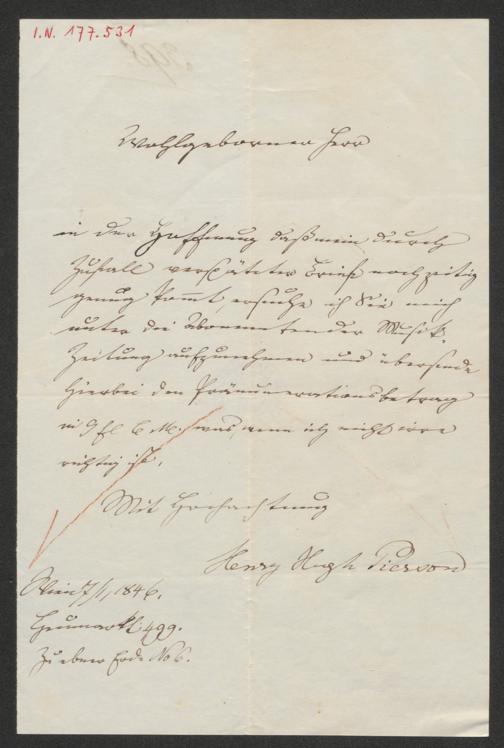 I.N. 177.531
398
Wohlgeborner Herr
in der Hoffnung daß mein durch
Zufall verspäteter Brief noch zeitig
genug kommt, ersuche ich Sie mich
unter die Abonnenten der Musik-
Zeitung aufzunehmen und übersende
hierbei den Pränumerationsbetrag
in 9 fl C. M. was, wenn ich nicht irre
richtig ist.
Mit Hochachtung
Henry Hugh Pierson
Wien 7/1, 1846.
Heumarkt 499.
Zu ebner Erde No 6.